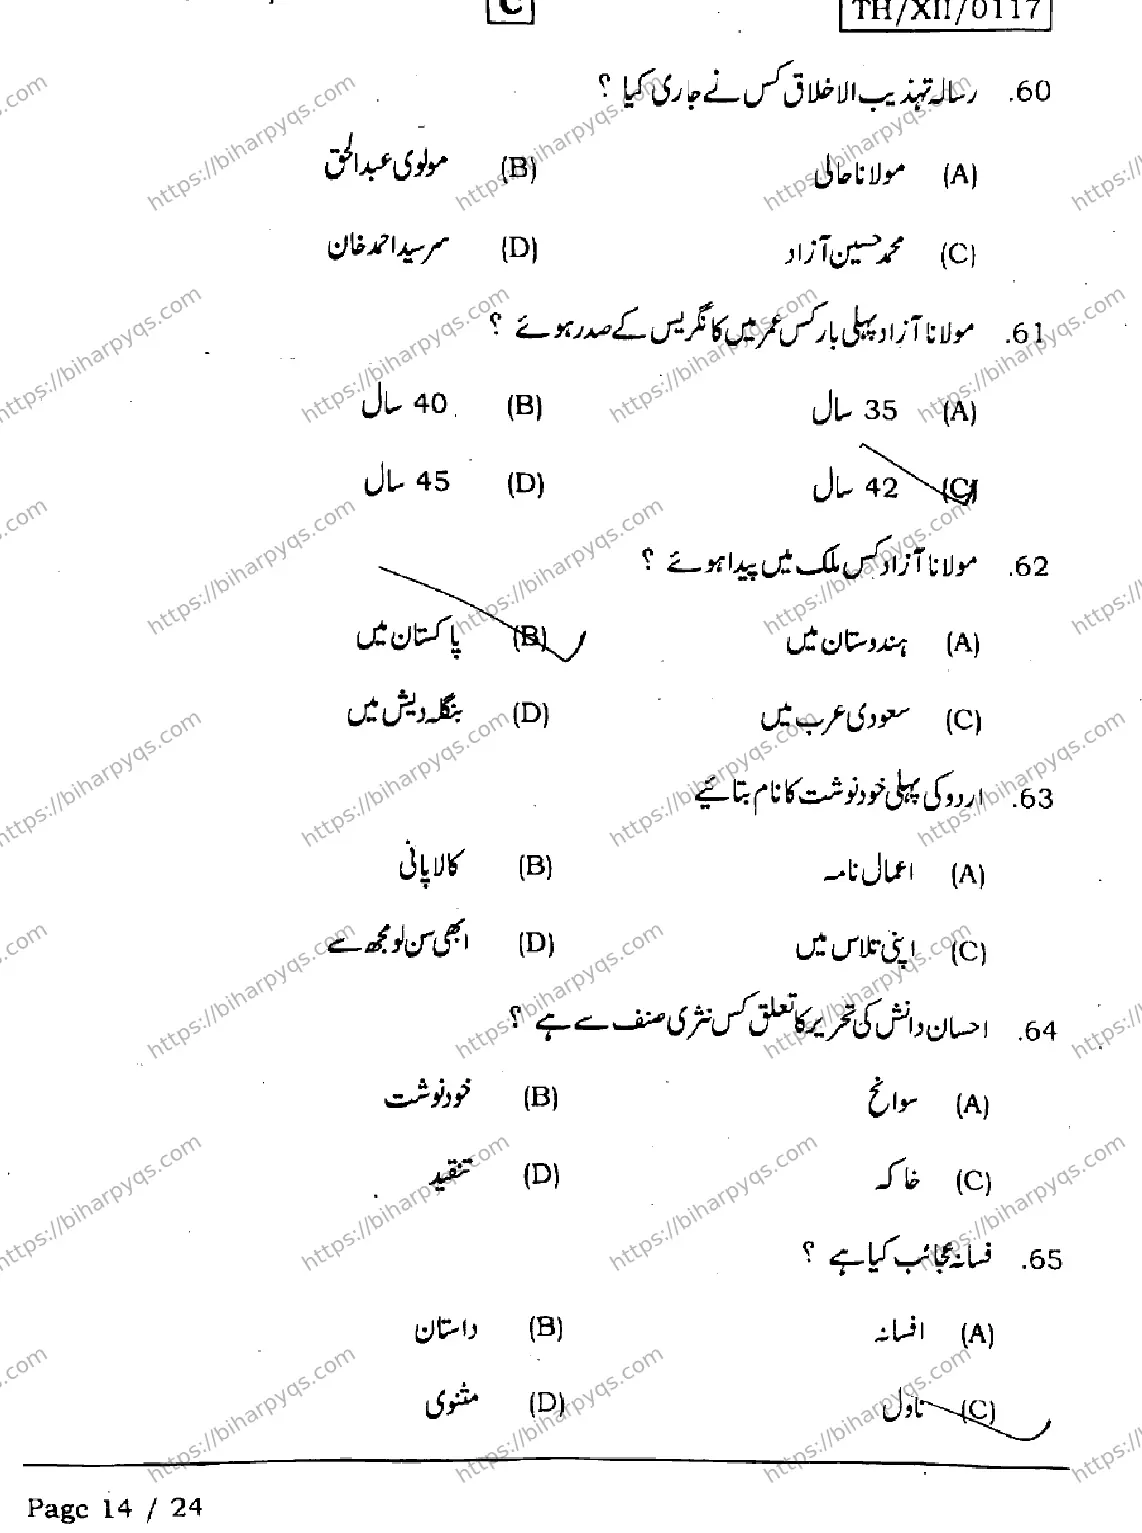 C TH/XII/0117
60. رسالہ تہذیب الاخلاق کس نے جاری کیا ؟
(A) مولانا حالی (B) مولوی عبدالحق
(C) محمد حسین آزاد (D) سرسید احمد خان
61. مولانا آزاد پہلی بار کس عمر میں کانگریس کے صدر ہوئے ؟
(A) 35 سال (B) 40 سال
(C) 42 سال (D) 45 سال
62. مولانا آزاد کس ملک میں پیدا ہوئے ؟
(A) ہندوستان میں (B) پاکستان میں
(C) سعودی عرب میں (D) بنگلہ دیش میں
63. اردو کی پہلی خودنوشت کا نام بتائیے
(A) اعمال نامہ (B) کالا پانی
(C) اپنی تلاس میں (D) ابھی سن لو مجھ سے
64. احسان دانش کی تحریر کا تعلق کس نثری صنف سے ہے ؟
(A) سوانح (B) خودنوشت
(C) خاکہ (D) تنقید
65. فسانہ عجائب کیا ہے ؟
(A) افسانہ (B) داستان
(C) ناول (D) مثنوی
Page 14 / 24
https://biharpyqs.com